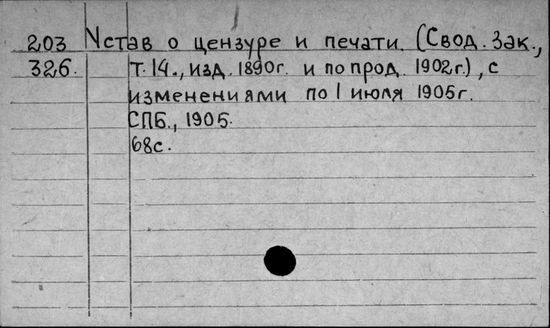 203 Устав о цензуре и печати. (Свод. Зак.,
326. т. 14., изд. 1890г. и по прод. 1902г.), с
изменениями по 1 июля 1905г.
СПБ., 1905.
68с.